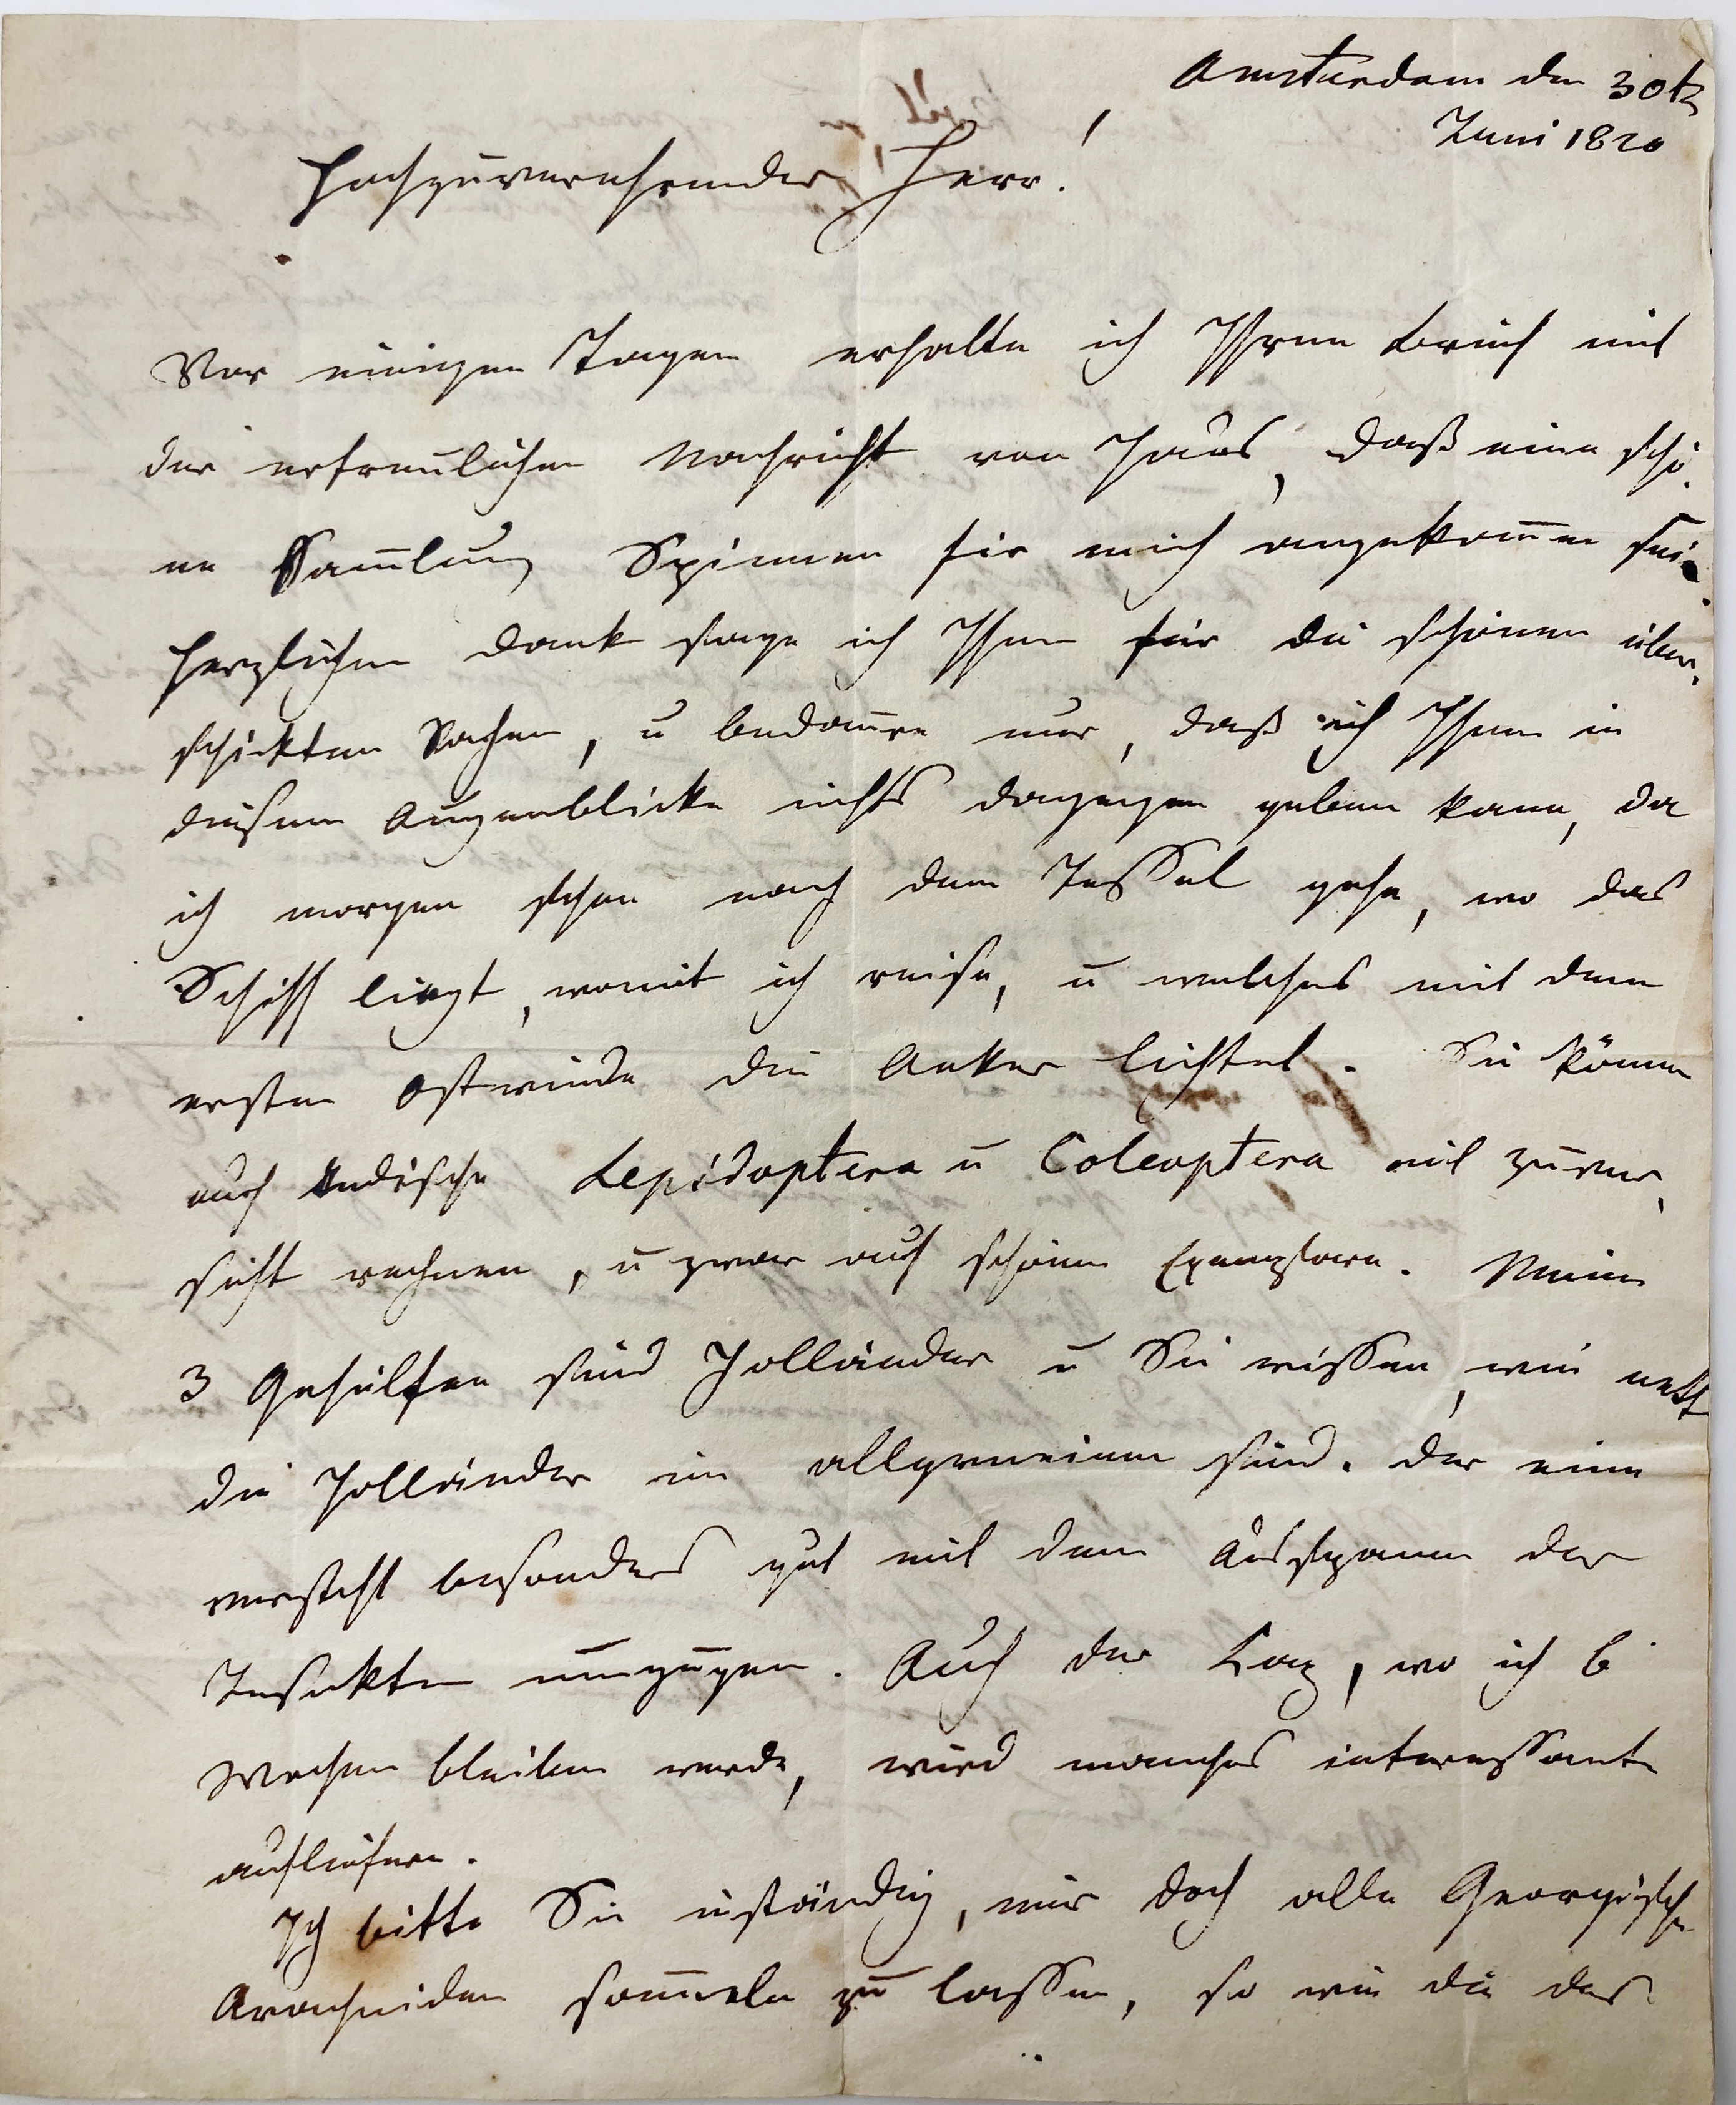 Amsterdam den 30t
Juni 1820
Hochzuverehrender Herr!
Vor einigen Tagen erhalte ich Ihren Brief mit
der erfreulichen Nachricht von Haus, daß eine schö-
ne Sam̄lung Spinnen für mich angekom̄en sei.
Herzlichen Dank sage ich Ihnen für die schönen über-
schickten Sachen, u bedaure nur, daß ich Ihnen in
diesem Augenblicke nichts dagegen geben kann, da
ich morgen schon nach dem Tessel gehe, wo das
Schiff liegt, womit ich reise, u welches mit dem
ersten Ostwinde die Anker lichtet. Sie können
auf Indische Lepidoptera u Coleoptera mit Zuver-
sicht rechnen, u zwar auf schöne Exemplare. Meine
3 Gehülfen sind Holländer u Sie wissen, wie nett
die Holländer im allgemeinen sind. Der eine
versteht besonders gut mit dem Ausspannen der
Insekten umzugehen. Auch der Cap, wo ich 6
Wochen bleiben werde, wird manches interessante
aufliefern.
Ich bitte Sie inständig, mir doch alle Georgische
Arachniden sam̄eln zu lassen, so wie die des